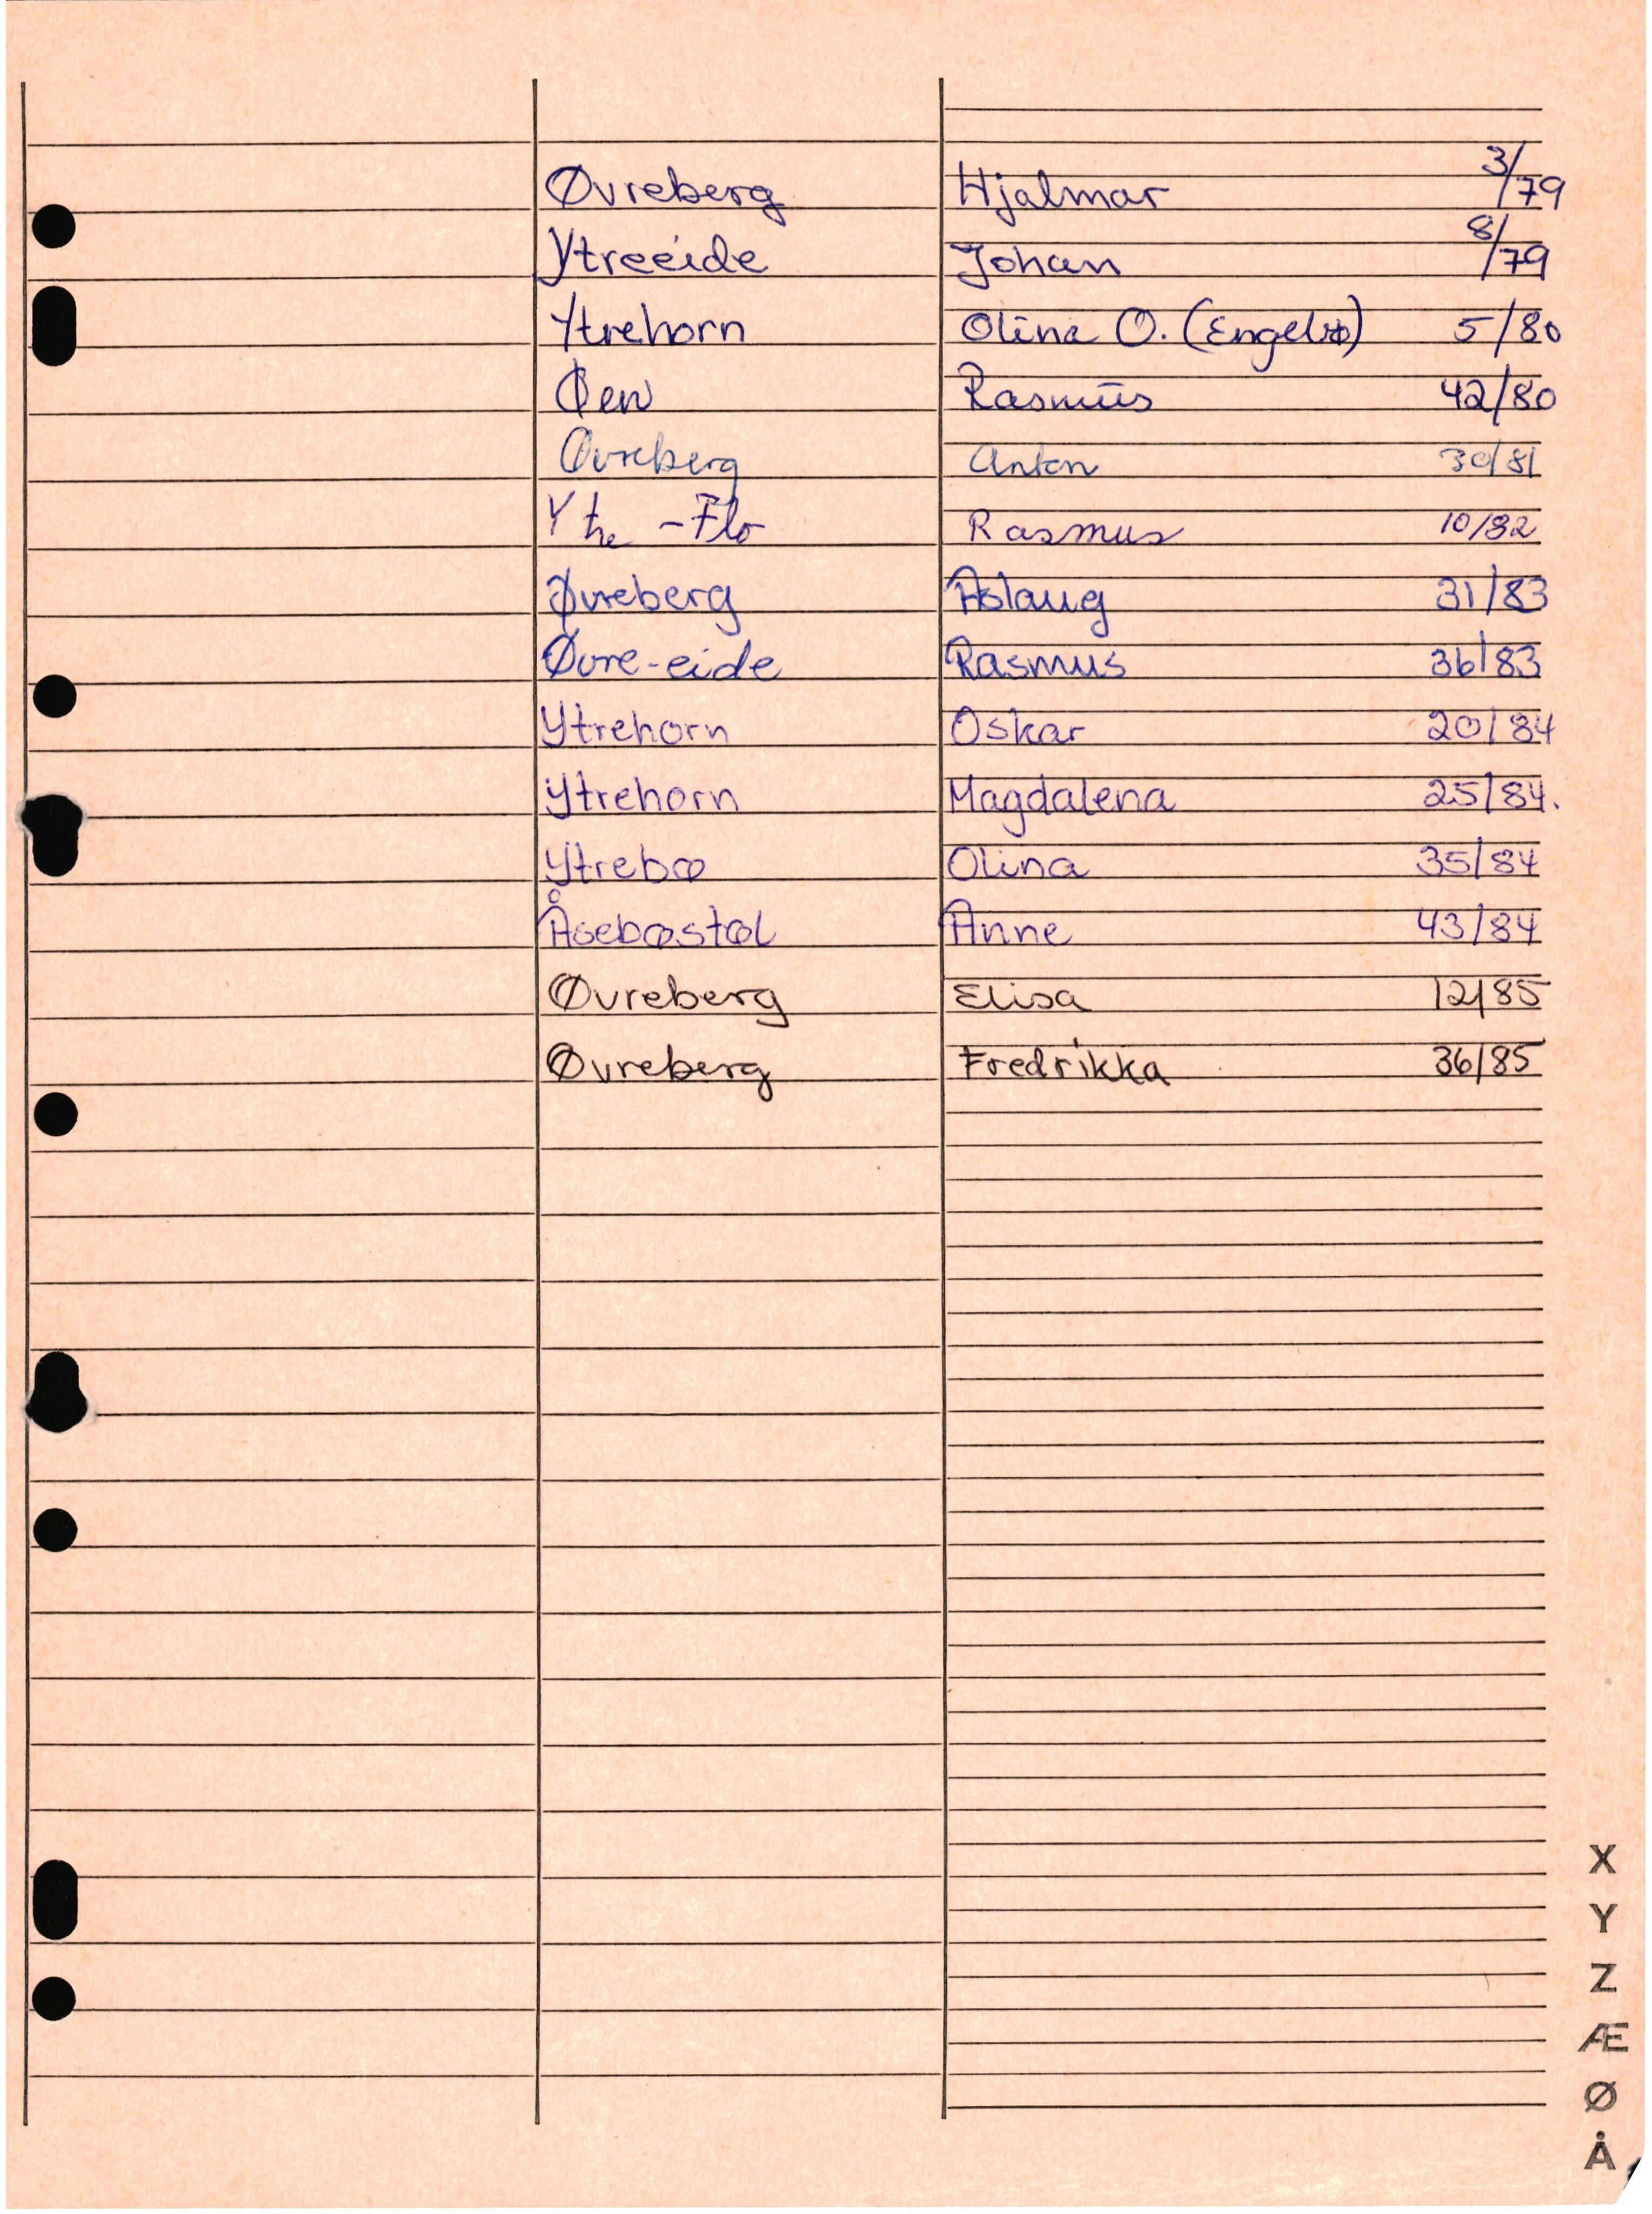 Øvreberg Hjalmar 3/79
Ytreeide Johan 8/79
Ytrehorn Olina O. (Engelbø) 5/80
Øen Rasmus 42/80
Øvreberg Anton 30/81
Ytre - Flo Rasmus 10/82
Øvreberg Aslaug 31/83
Øvre-eide Rasmus 36/83
Ytrehorn Oskar 20/84
Ytrehorn Magdalena 25/84.
Ytrebø Olina 35/84
Åsebøstøl Anne 43/84
Øvreberg Elisa 12/85
Øvreberg Fredrikka 36/85
X
Y
Z
Æ
Ø
Å